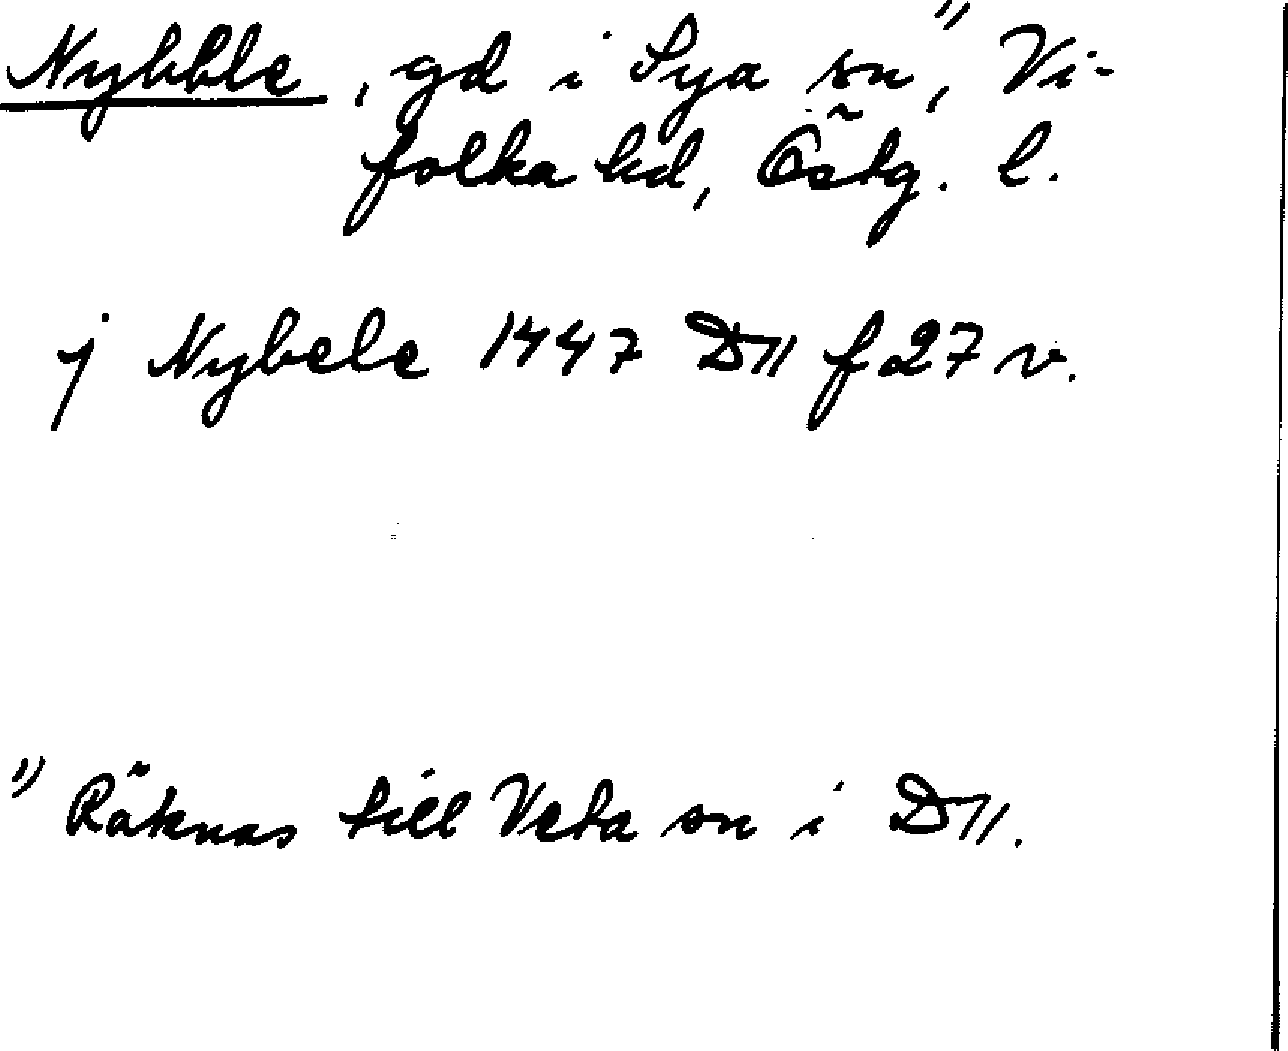 Nybble, gd i Sya sn, 1) Vi-
folka hd, Östg. l.
j Nybele 1447 D11 f 27 v.
1) Räknas till Veta sn i D11.